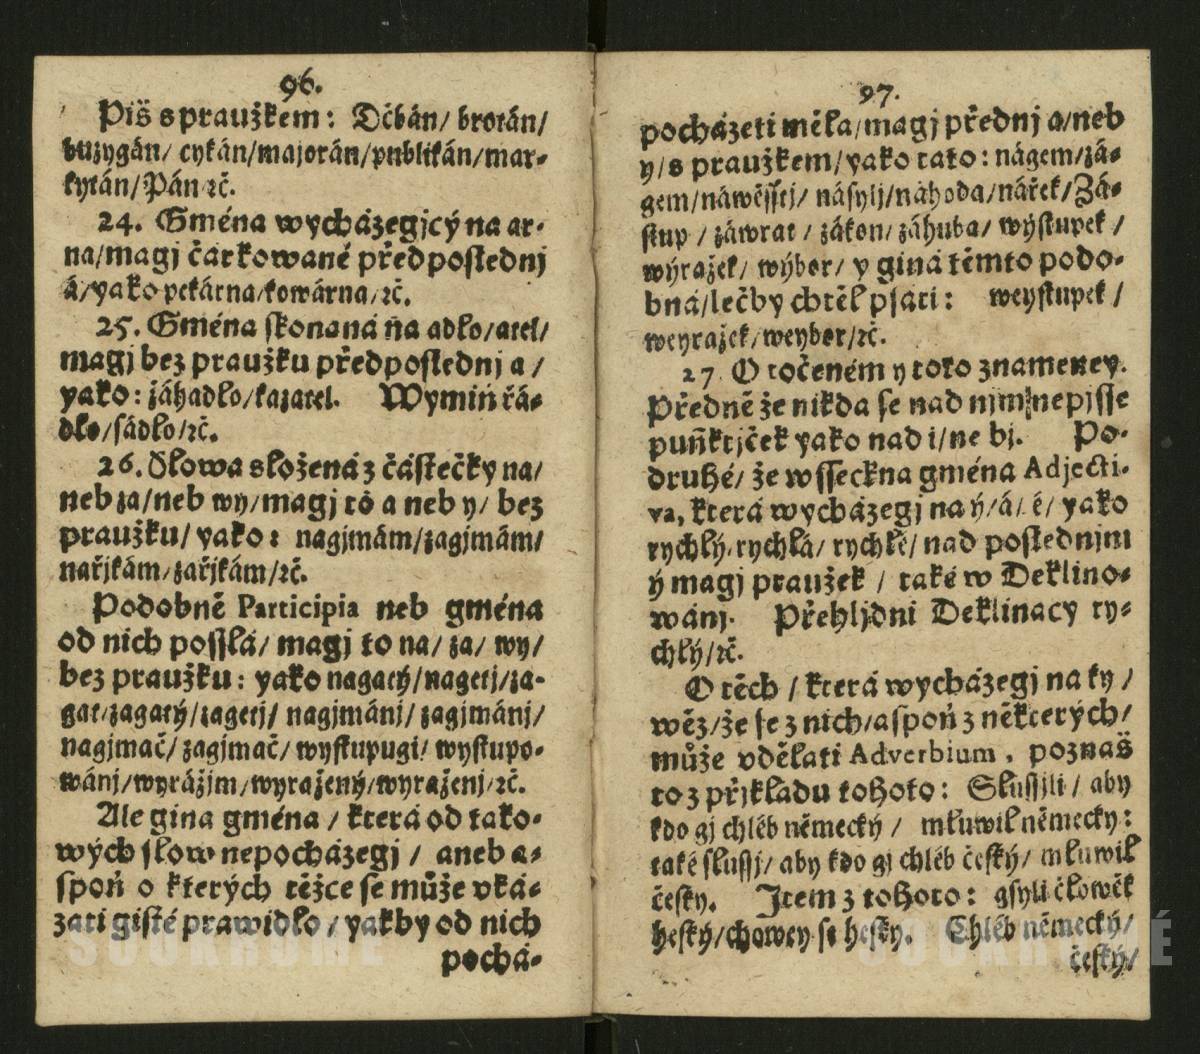 96.
Piš s praužkem: Dčbán/ brotán/
buzygán/ cykán/majorán/publikán/mar-
kytán/Pán ꝛč.
24. Gména wycházegjcý na ar-
na/magj čárkowané předposlednj
á/yako pekárna/kowárna/ꝛč.
25. Gména skonaná na adlo/atel/
magj bez praužku předposlednj a /
yako: žáhadlo/kazatel. Wymiň řá-
dlo/sádlo/ꝛč.
26. Slowa složená z částečky na/
neb za/neb wy/magj to a neb y/ bez
praužku/ yako: nagjmám/zagjmám/
nařjkám/zařjkám/ꝛč.
Podobně Participia neb gména
od nich posslá/ magj to na/ za/ wy/
bez praužku: yako nagatý/nagetj/za-
gat/zagatý/zagetj/ nagjmánj/zagjmánj/
nagjmač/ zagjmač/ wystupugi/ wystupo-
wánj/wyrážjm/wyražený/wyraženj/ꝛč.
Ale gina gména / která od tako-
wých slow nepocházegj / aneb a-
spoň o kterých těžce se může vká-
zati gisté prawidlo / yakby od nich
pochá-
97.
pocházeti měla/magj přednj a/neb
y/s praužkem/yako tato: nágem/zá-
gem/náwěsstj/ násylj/náhoda/nářek/Zá-
stup / záwrat / zákon/ záhuba/ wýstupek /
wýražek/ wýbor/ y giná těmto podo-
bná/lečby chtěl psáti: weystupek /
weyražek/weybor/ꝛč.
27. O točeném y toto znameney.
Předně že nikda se nad njm nepjsse
puňktjček yako nad i/ne bj. Po-
druhé/ že wsseckna gména Adjecti-
va, která wycházegj na ý/á/ é/ yako
rychlý, rychlá/ rychlé/ nad poslednjm
ý magj praužek / také w Deklino-
wánj. Přehljdni Deklinacy ry-
chlý/ꝛč.
O těch / která wycházegj na ky /
wěz/že se z nich/aspoň z některých/
může vdělati Adverbium, poznaš
to z přjkladu tohoto: Slussjli / aby
kdo gj chléb německý / mluwil německy:
také slussj/ aby kdo gj chléb český/ mluwil
česky. Jtem z tohoto: gsyli člowěk
heský/chowey se hesky. Chléb německý/
český/
SOUKROMÉ
SOUKROMÉ